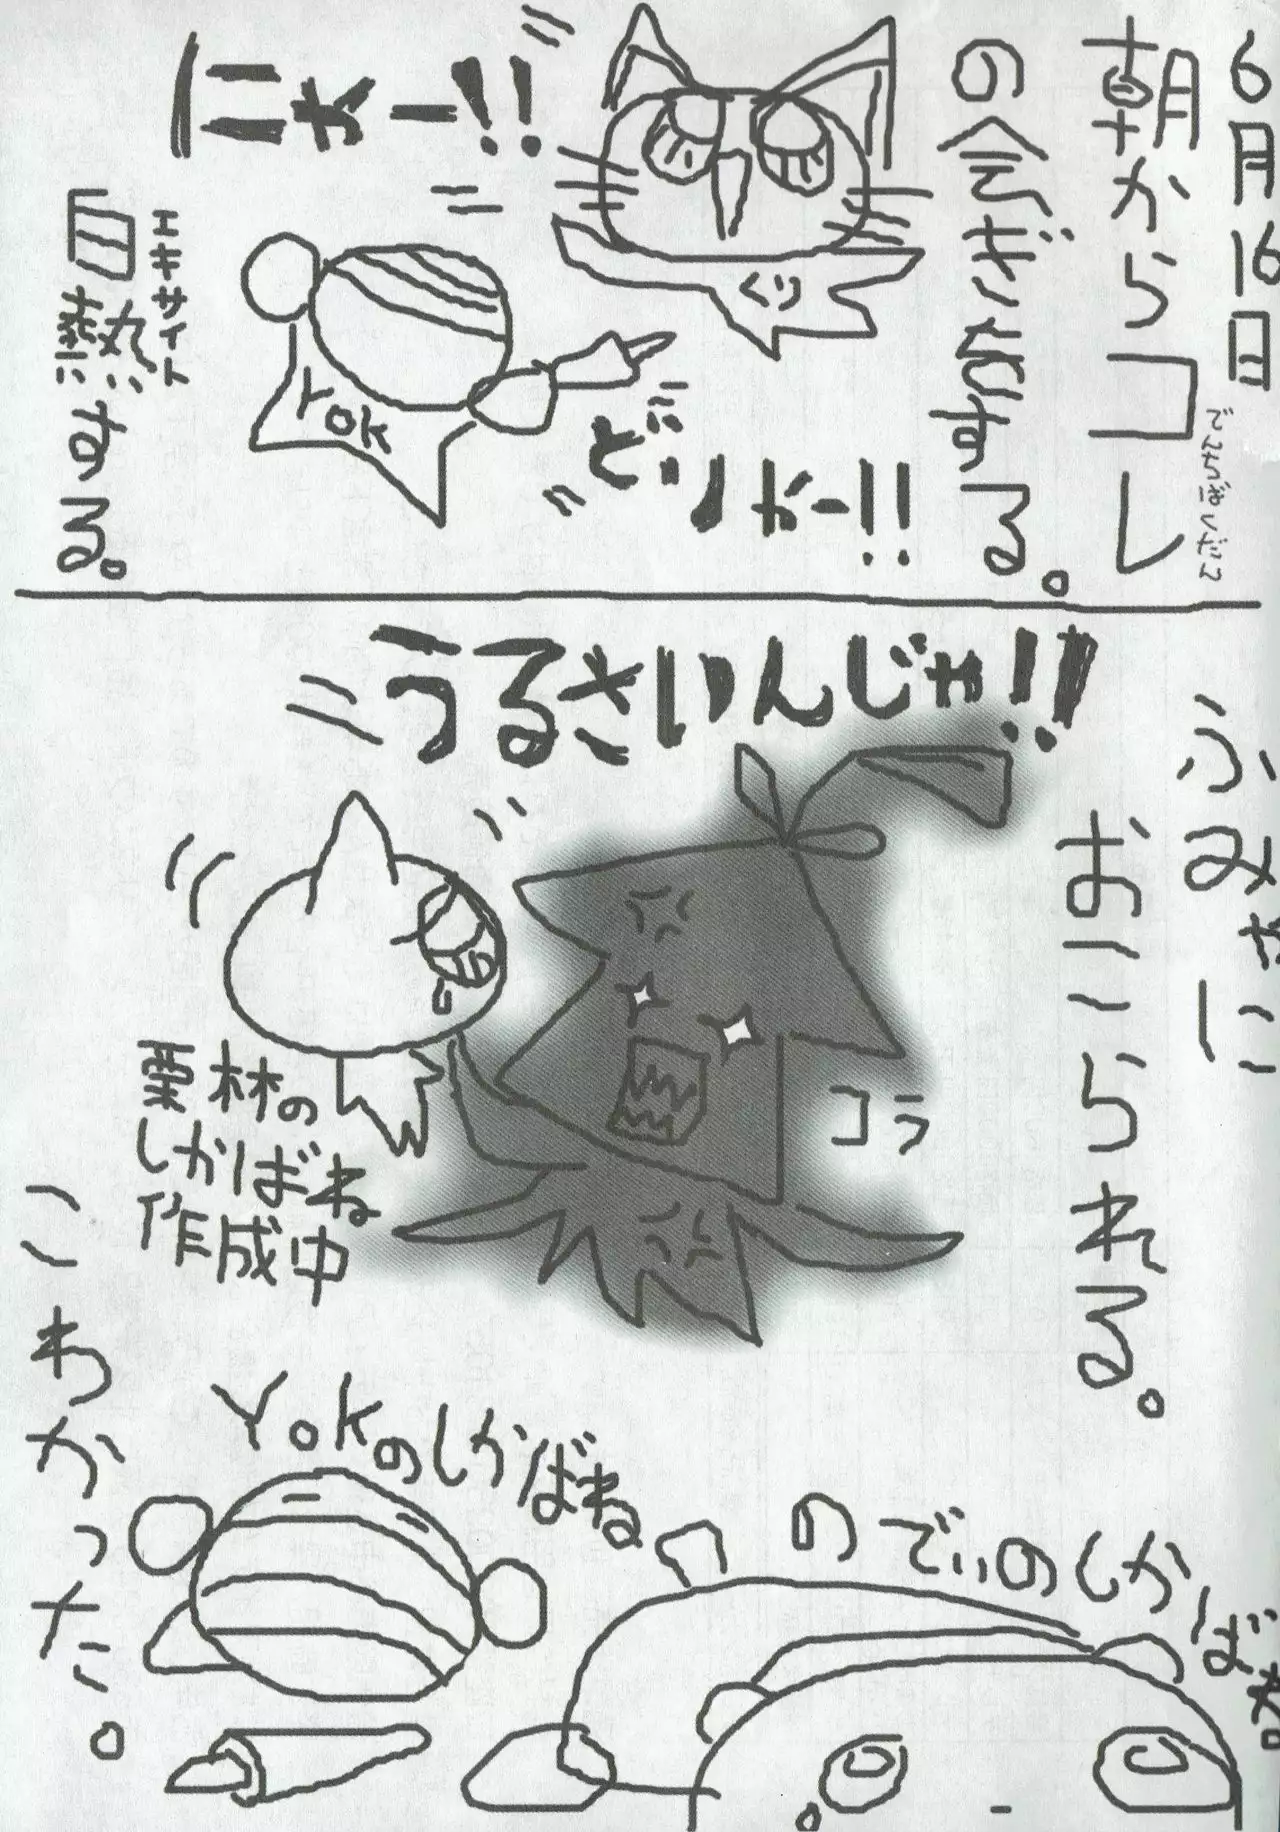 6月16日
朝からコレ
でんちばくだん
のくんずをする。
にょー!!
くり
Yok
どりゃー!!
エキサイト
白熱する。
うるさいんじゃ!!
ふみゃに
おこられる。
コラ
栗林の
しかばね
作成中
こわかった。
Yokのしかばね
のでぃのしかばね